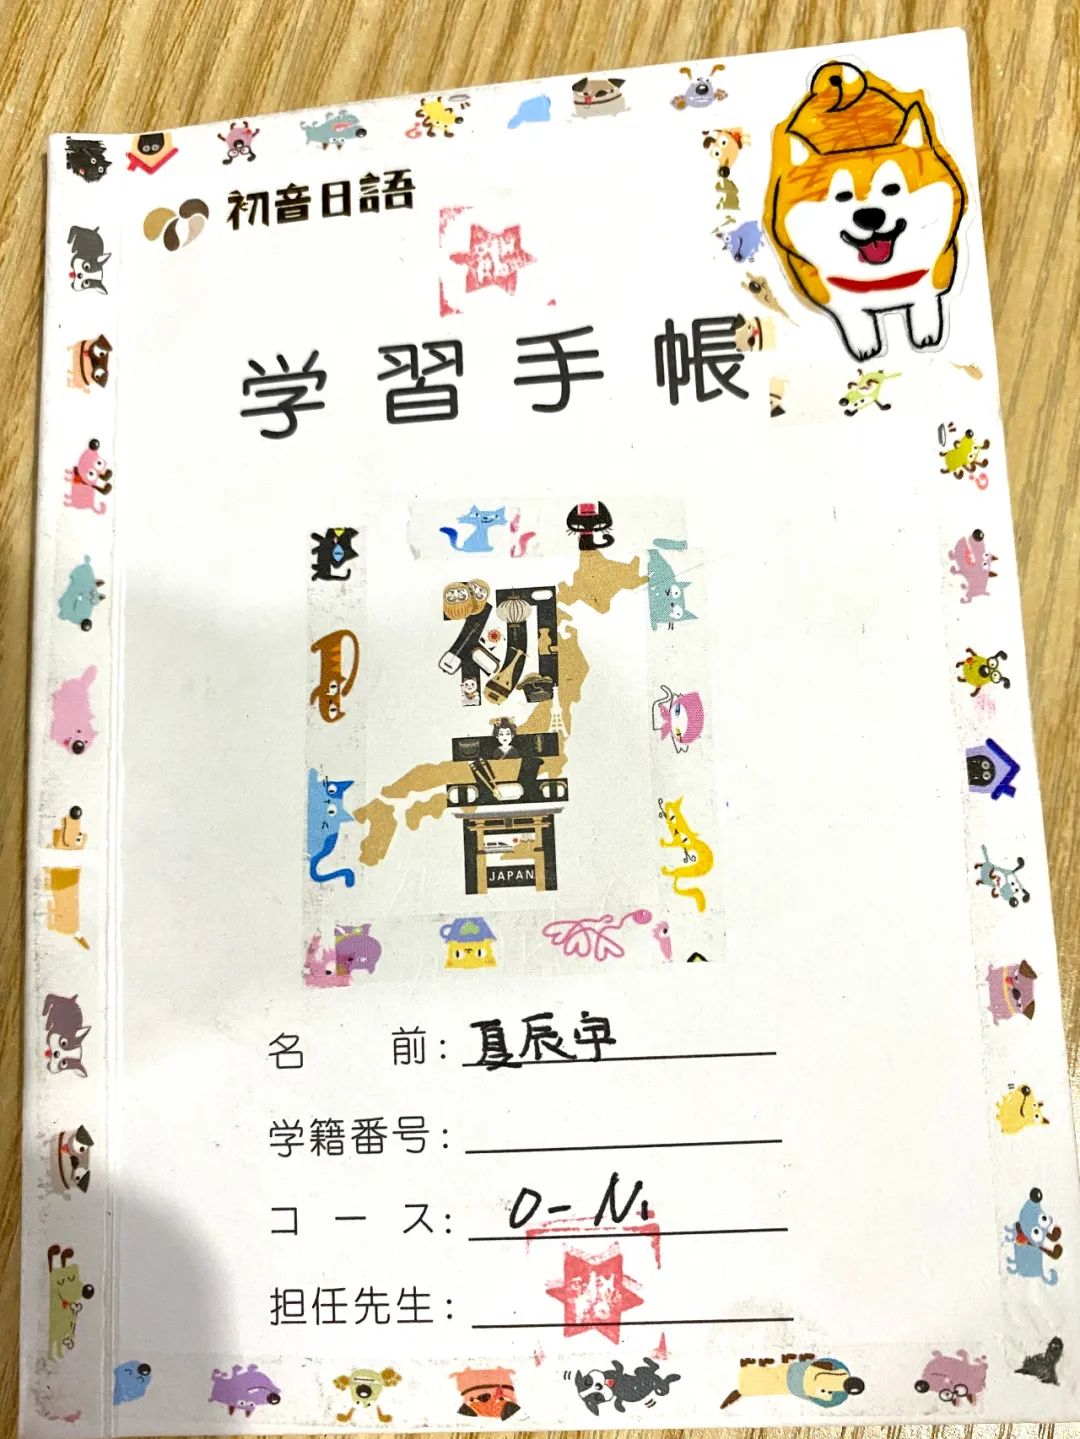 初音日語
学習手帳
初音
JAPAN
名前：夏辰宇
学籍番号：
コース：0-N1
担任先生：